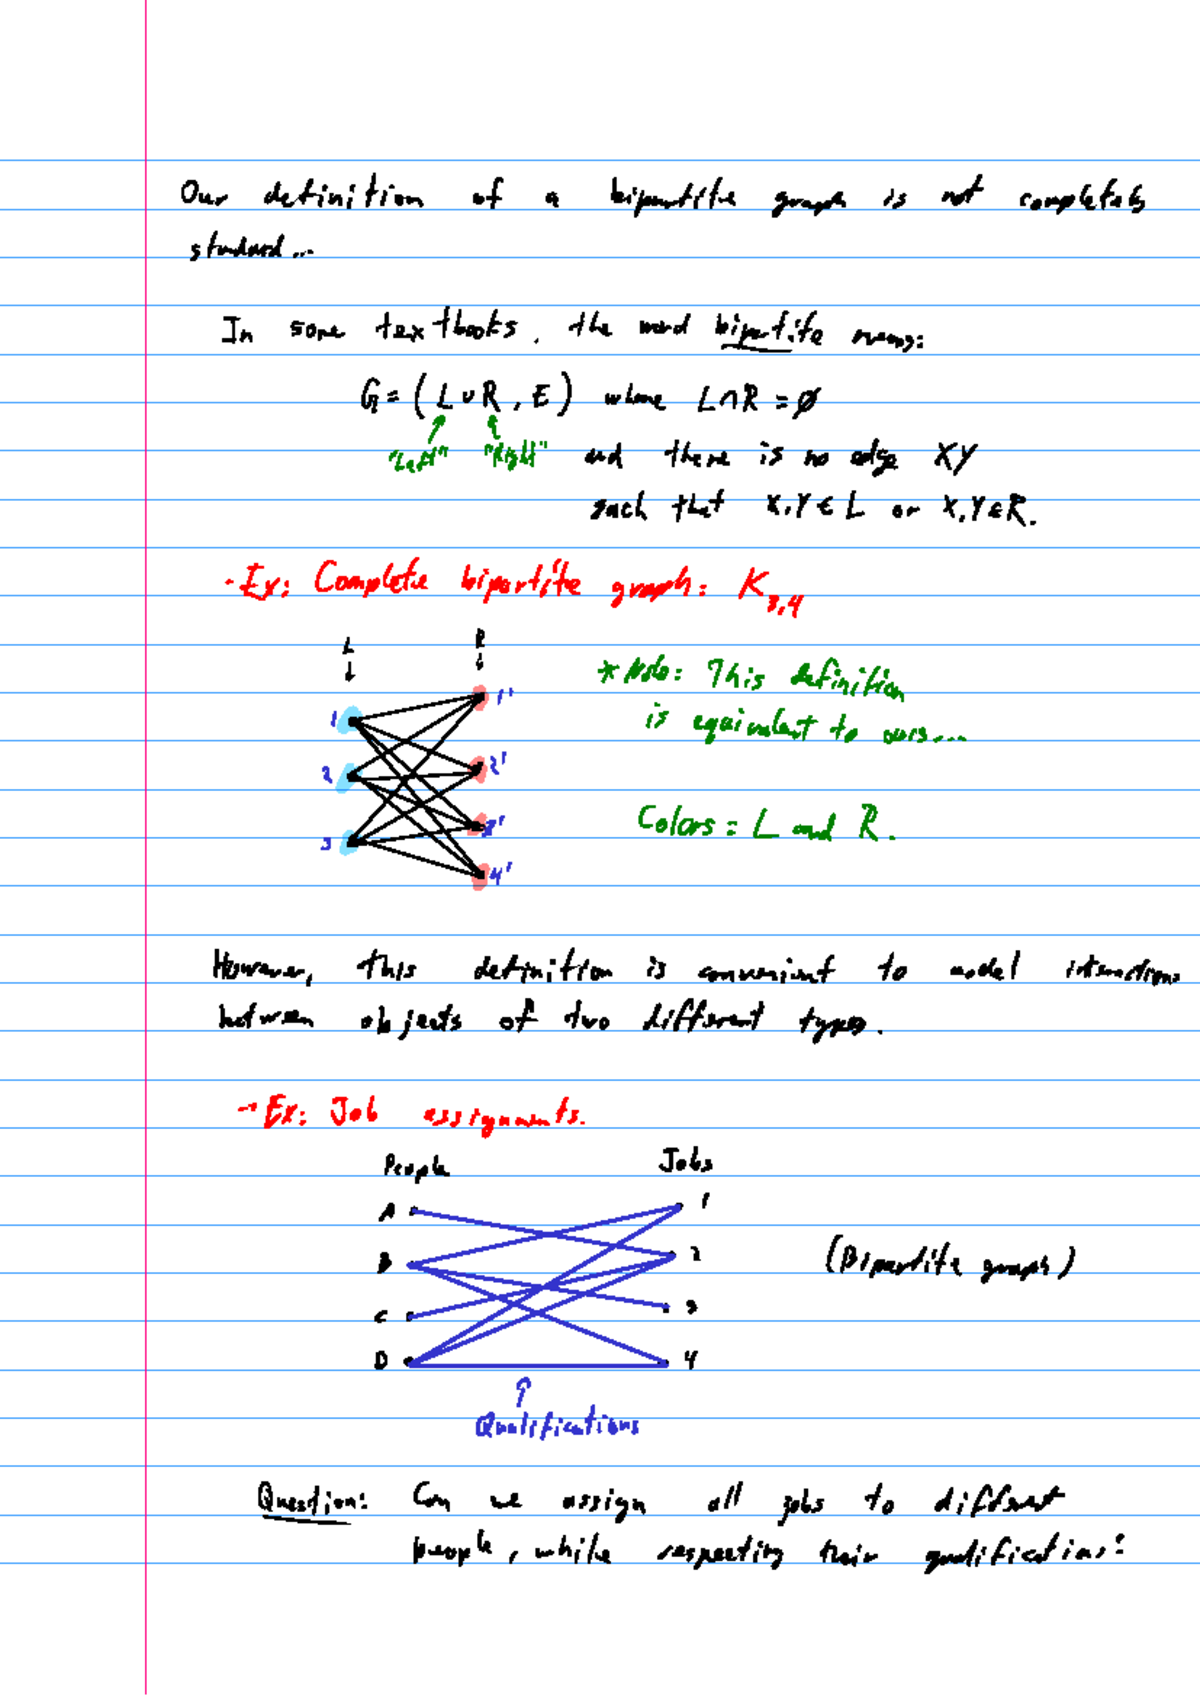 Our definition of a bipartite graph is not completely
standard...
In some textbooks, the word bipartite means:
G = (L ∪ R, E) where L ∩ R = ∅
"Left" "Right" and there is no edge XY
such that X,Y ∈ L or X,Y ∈ R.
- Ex: Complete bipartite graph: K₃,₄
L R
* Note: This definition
is equivalent to ours...
1 1'
2 2'
3 3'
4'
Colors = L and R.
However, this definition is convenient to model interactions
between objects of two different types.
→ Ex: Job assignments.
People Jobs
A 1
B 2 (Bipartite graph)
C 3
D 4
Qualifications
Question: Can we assign all jobs to different
people, while respecting their qualifications?